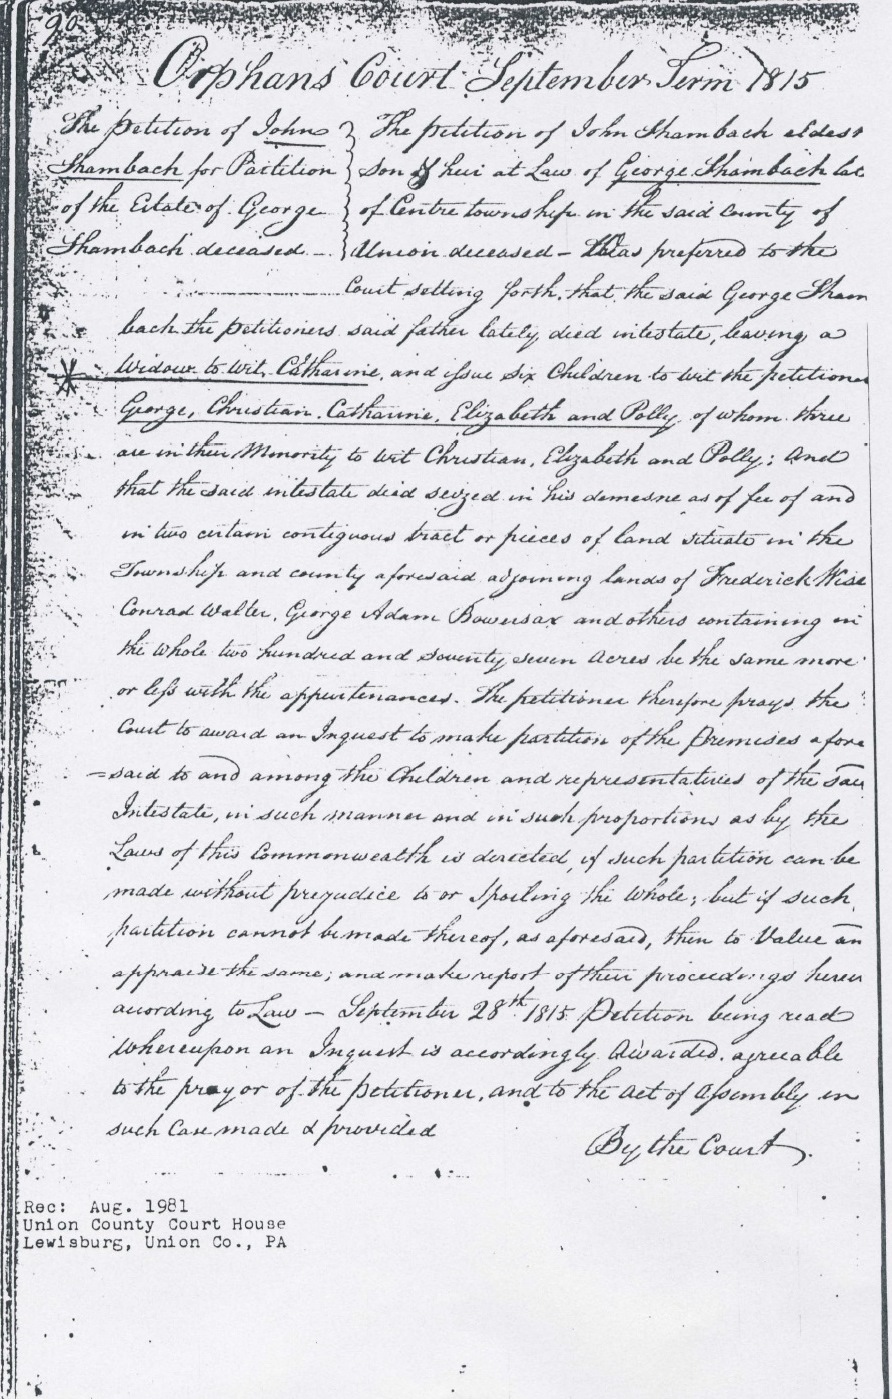 90
Orphans Court September Term 1815
The petition of John
Shambach for Partition
of the Estate of George
Shambach deceased –
The petition of John Shambach eldest
son & heir at Law of George Shambach lat
of Centre township in the said county of
Union deceased – Was preferred to the
Court setting forth, that the said George Sham
bach the petitioners said father lately died intestate, leaving a
Widow to wit, Catharine, and issue six Children to wit the petitioner
George, Christian, Catharine, Elizabeth and Polly of whom three
are in their Minority to wit Christian, Elizabeth and Polly; And
that the said intestate died seized in his demesne as of fee of and
in two certain contiguous tract or pieces of land situate in the
Township and county aforesaid adjoining lands of Frederick Wise
Conrad Walter, George Adam Bowersax and others containing in
the whole two hundred and seventy seven Acres be the same more
or less with the appurtenances. The petitioner therefore prays the
Court to award an Inquest to make partition of the premises afore
=said to and among the Children and representatives of the said
Intestate, in such manner and in such proportions as by the
Laws of this Commonwealth is directed, if such partition can be
made without prejudice to or spoiling the whole; but if such
partition cannot be made thereof, as aforesaid, then to Value an
appraise the same; and make report of their proceedings herein
according to Law – September 28th 1815 Petition being read
Whereupon an Inquest is accordingly Awarded, agreeable
to the prayor of the petitioner, and to the Act of Assembly in
such Case made & provided
By the Court
Rec: Aug. 1981
Union County Court House
Lewisburg, Union Co., PA